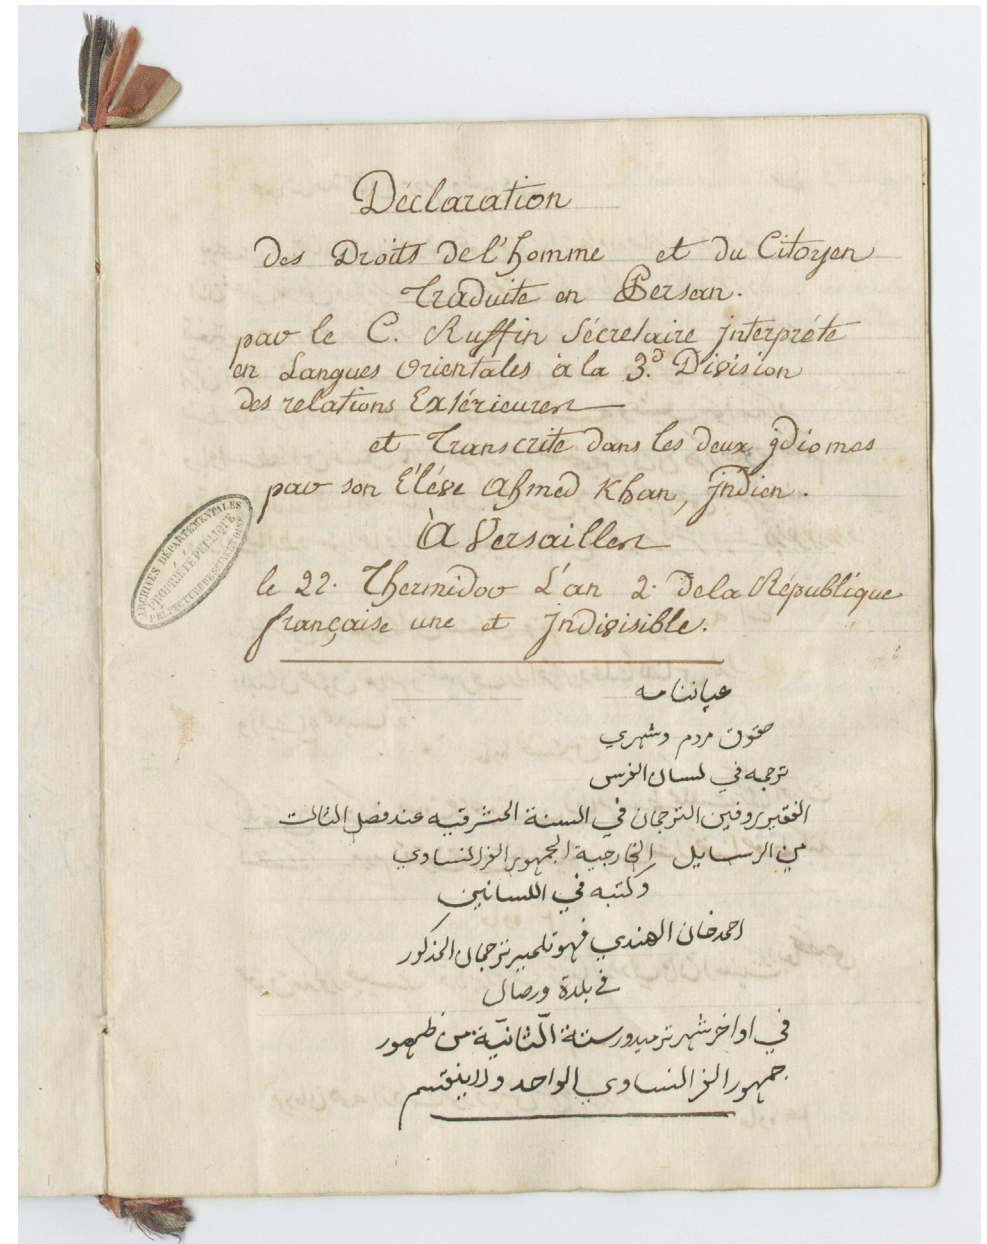 Declaration
des Droits de l'homme et du Citoyen
traduite en Persan.
par le C. Ruffin Sécretaire jnterpréte
en Langues Orientales à la 3.e Division
des relations Extérieures
et transcrite dans les deux jdiomes
par son Eléve Ahmed Khan, jndien.
à Versailles
le 22. Thermidor L'an 2. de la République
française une et jndivisible.
ARCHIVES DÉPARTEMENTALES
PROPRIÉTÉ PUBLIQUE
PRÉFECTURE DE SEINE ET OISE
عياننامه
حقوق مردم وشهري
ترجمه في لسان الفرس
الفقير روفين الترجمان في السنة الشرقيه عند فصل الثالث
من الرسايل الخارجية الجمهور الفرانساوي
وكتبه في اللسانين
احمد خان الهندي فهو تلميذ ترجمان المذكور
في بلدة ورصال
في اواخر شهر ترميدور سنة الثانية من ظهور
جمهور الفرانساوي الواحد ولاينقسم